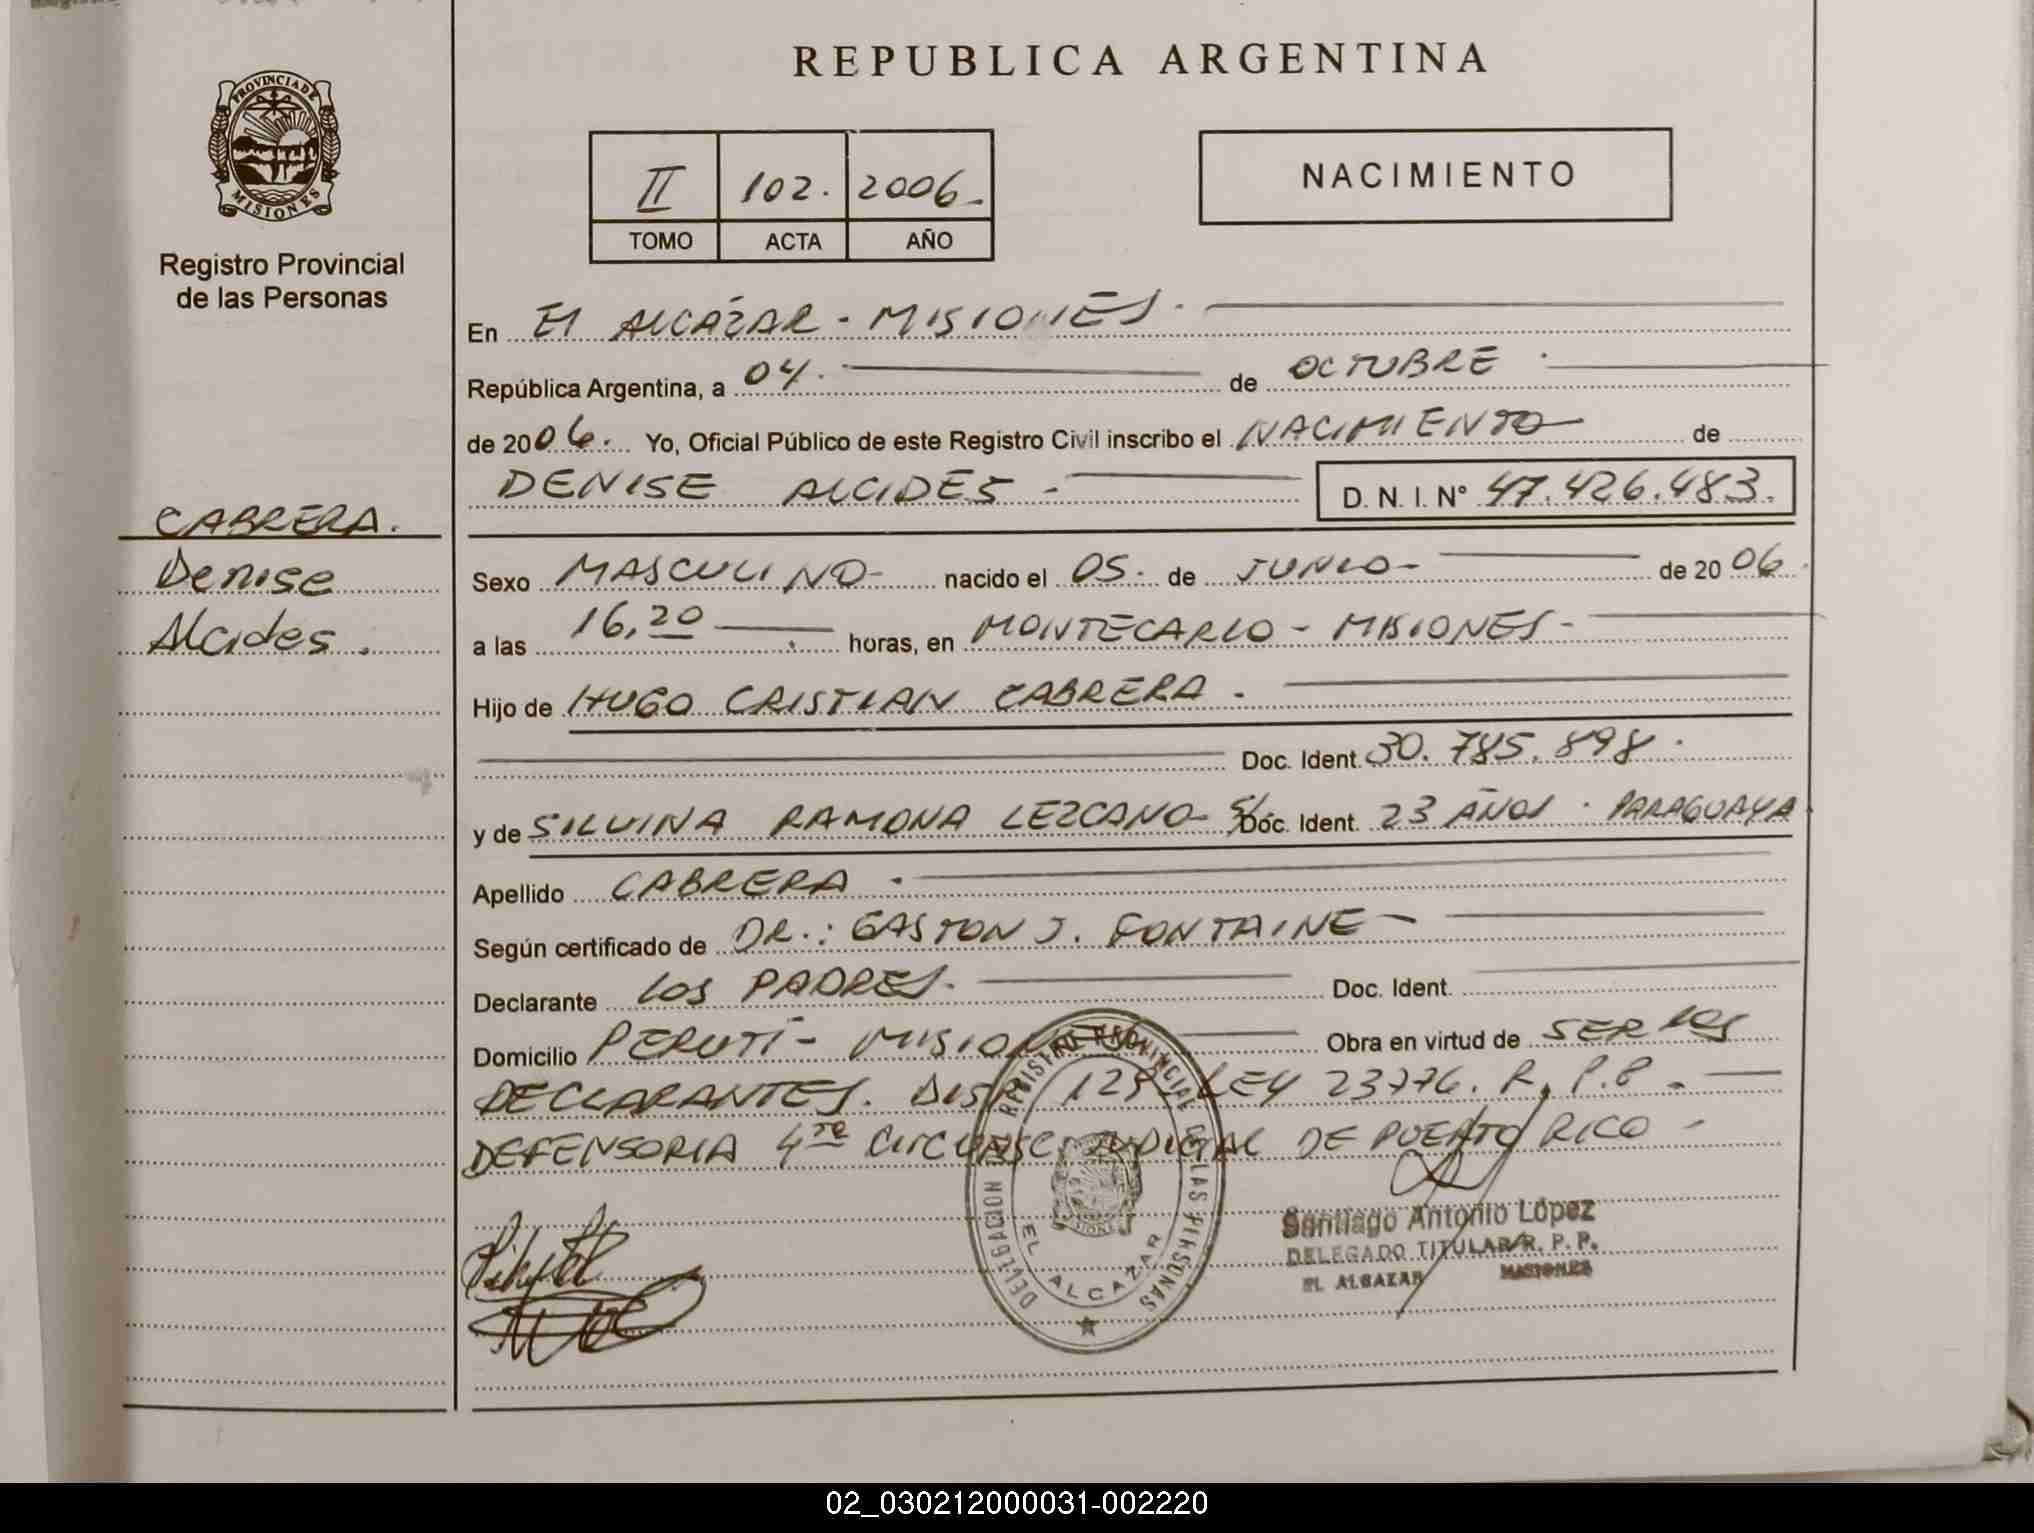 PROVINCIA DE
MISIONES
Registro Provincial
de las Personas
CABRERA.
Denise
Alcides.
REPUBLICA ARGENTINA
II 102. 2006.
TOMO ACTA AÑO
NACIMIENTO
En El ALCÁZAR - MISIONES -
República Argentina, a 04. de OCTUBRE
de 2006. Yo, Oficial Público de este Registro Civil inscribo el NACIMIENTO de
DENISE ALCIDES - D. N. I. N° 47.426.483.
Sexo MASCULINO- nacido el 05. de JUNIO- de 2006
a las 16,20 horas, en MONTECARLO - MISIONES -
Hijo de HUGO CRISTIAN CABRERA -
Doc. Ident. 30.785.898.
y de SILVINA RAMONA LEZCANO- S/ Doc. Ident. 23 AÑOS . PARAGUAYA
Apellido CABRERA -
Según certificado de DR.: GASTON J. FONTAINE -
Declarante LOS PADRES. Doc. Ident.
Domicilio PERUTÍ - MISIONES Obra en virtud de SER LOS
DECLARANTES. DISP. 129 LEY 23776. R.P.P. -
DEFENSORIA 4ta CIRCUNSC JUDICIAL DE PUERTO RICO -
DELEGACION REGISTRO PROVINCIAL DE LAS PERSONAS
EL ALCAZAR
Santiago Antonio López
DELEGADO TITULAR R. P. P.
EL ALCAZAR MISIONES
02_030212000031-002220